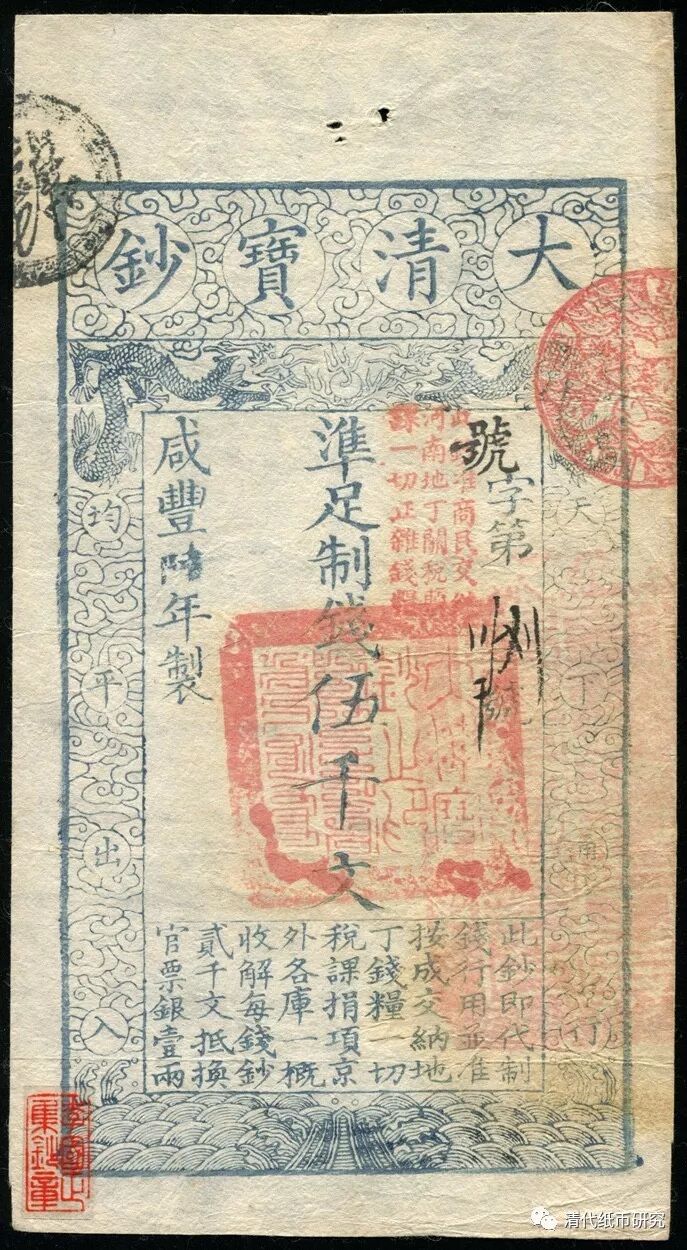 大清寶鈔
天下通行
號字第號
河南地丁關稅鹽
課一切正雜錢糧
準足制錢伍千文
咸豐陸年製
均平出入
此鈔即代制
錢行用並准
按成交納地
丁錢糧一切
稅課捐項京
外各庫一概
收解每錢鈔
貳千文抵換
官票銀壹兩
清代纸币研究